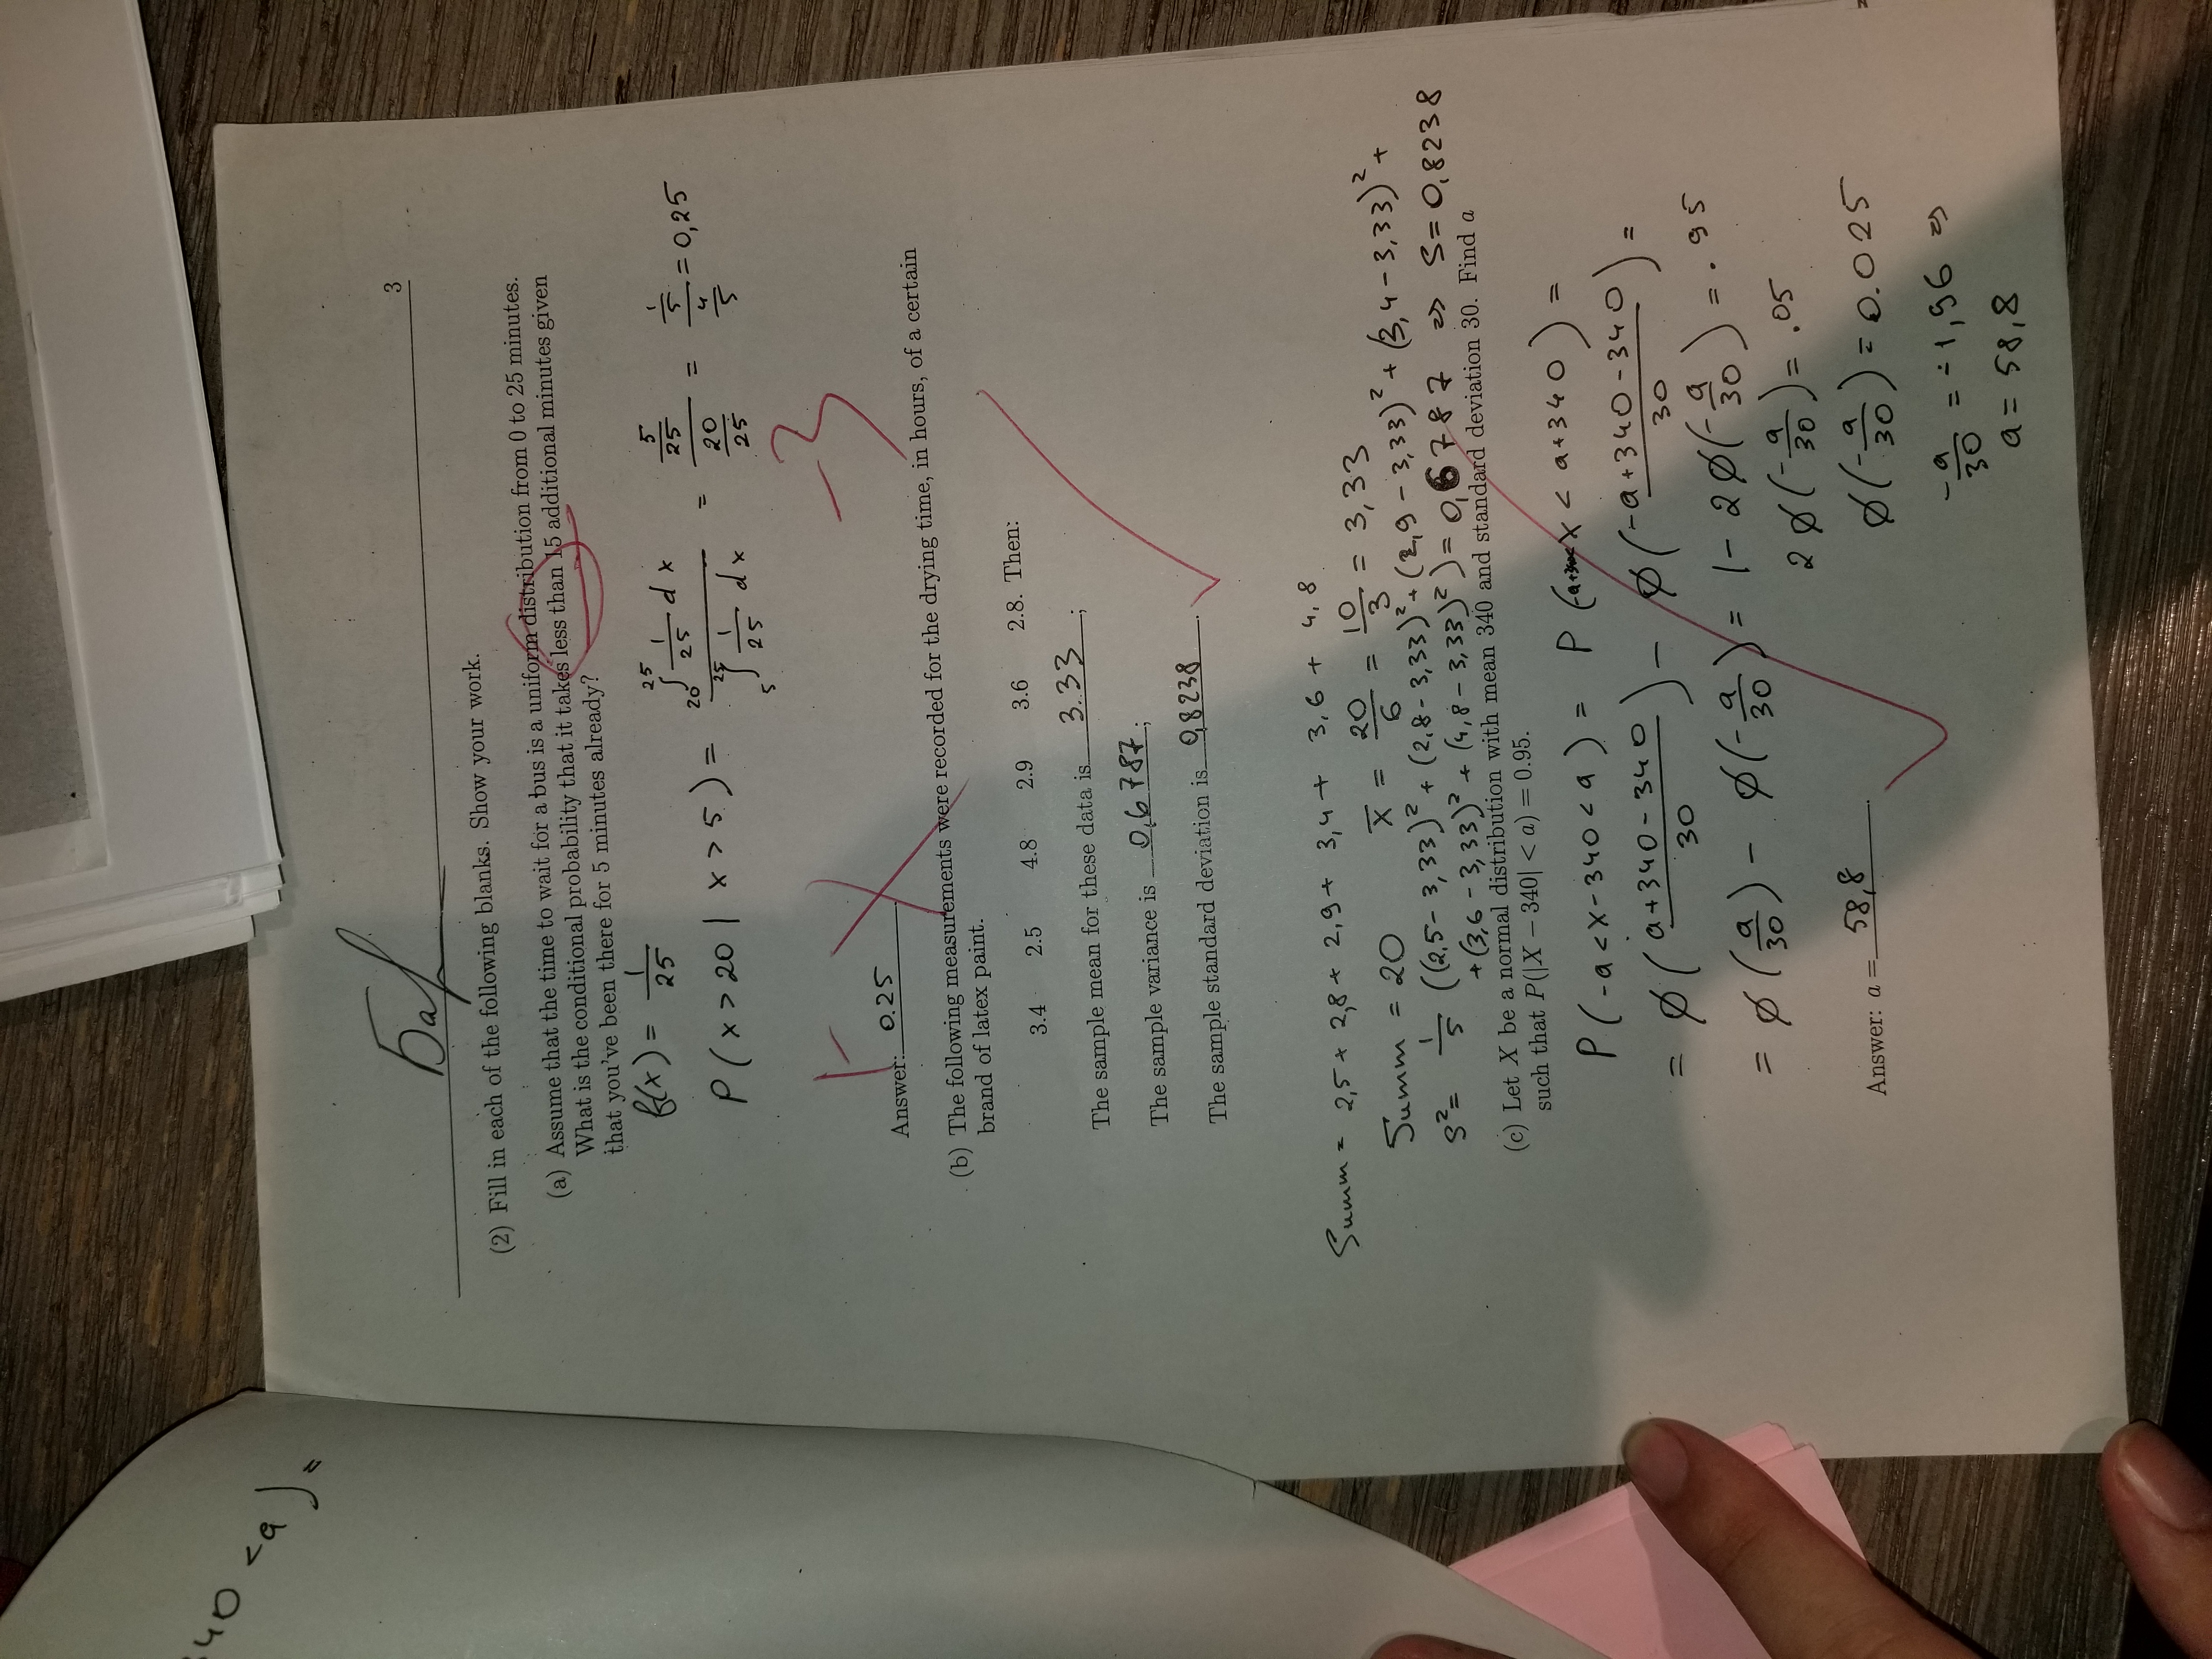 40 < a ) =
Бар
3
(2) Fill in each of the following blanks. Show your work.
(a) Assume that the time to wait for a bus is a uniform distribution from 0 to 25 minutes.
What is the conditional probability that it takes less than 15 additional minutes given
that you've been there for 5 minutes already?
f(x) = 1/25
P ( x > 20 | x > 5 ) = ∫_20^25 1/25 dx / ∫_5^25 1/25 dx = 5/25 / 20/25 = 1/5 / 4/5 = 0,25
-3
Answer: 0.25
(b) The following measurements were recorded for the drying time, in hours, of a certain
brand of latex paint.
3.4 2.5 4.8 2.9 3.6 2.8. Then:
The sample mean for these data is 3.33 ;
The sample variance is 0,6787 ;
The sample standard deviation is 0,8238 .
Summ = 2,5 + 2,8 + 2,9 + 3,4 + 3,6 + 4,8
Summ = 20 x̄ = 20/6 = 10/3 = 3,33
S² = 1/5 ((2,5 - 3,33)² + (2,8 - 3,33)² + (2,9 - 3,33)² + (3,4 - 3,33)² +
+ (3,6 - 3,33)² + (4,8 - 3,33)²) = 0,6787 => S = 0,8238
(c) Let X be a normal distribution with mean 340 and standard deviation 30. Find a
such that P(|X − 340| < a) = 0.95.
P ( -a < X - 340 < a ) = P ( -a+340 < X < a + 340 ) =
= ϕ ( a + 340 - 340 / 30 ) - ϕ ( -a + 340 - 340 / 30 ) =
= ϕ ( a/30 ) - ϕ ( -a/30 ) = 1 - 2 ϕ ( -a/30 ) = .95
2 ϕ ( -a/30 ) = .05
Answer: a = 58,8 .
ϕ ( -a/30 ) = 0.025
-a/30 = -1,96 =>
a = 58,8